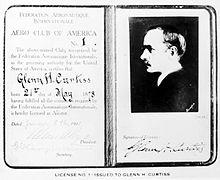 FEDERATION AERONAUTIQUE
INTERNATIONALE
AERO CLUB OF AMERICA
No. 1.
The above-named Club, recognized by
the Federation Aeronautique Internationale, as
the governing authority for the United
States of America, certifies that
Glenn H. Curtiss
born 21st day of May 1878
having fulfilled all the conditions required by
the Federation Aeronautique Internationale,
is hereby licensed as Aviator.
Dated
President
Secretary
Signature of Licensee
Glenn H. Curtiss
LICENSE No. 1 ISSUED TO GLENN H. CURTISS